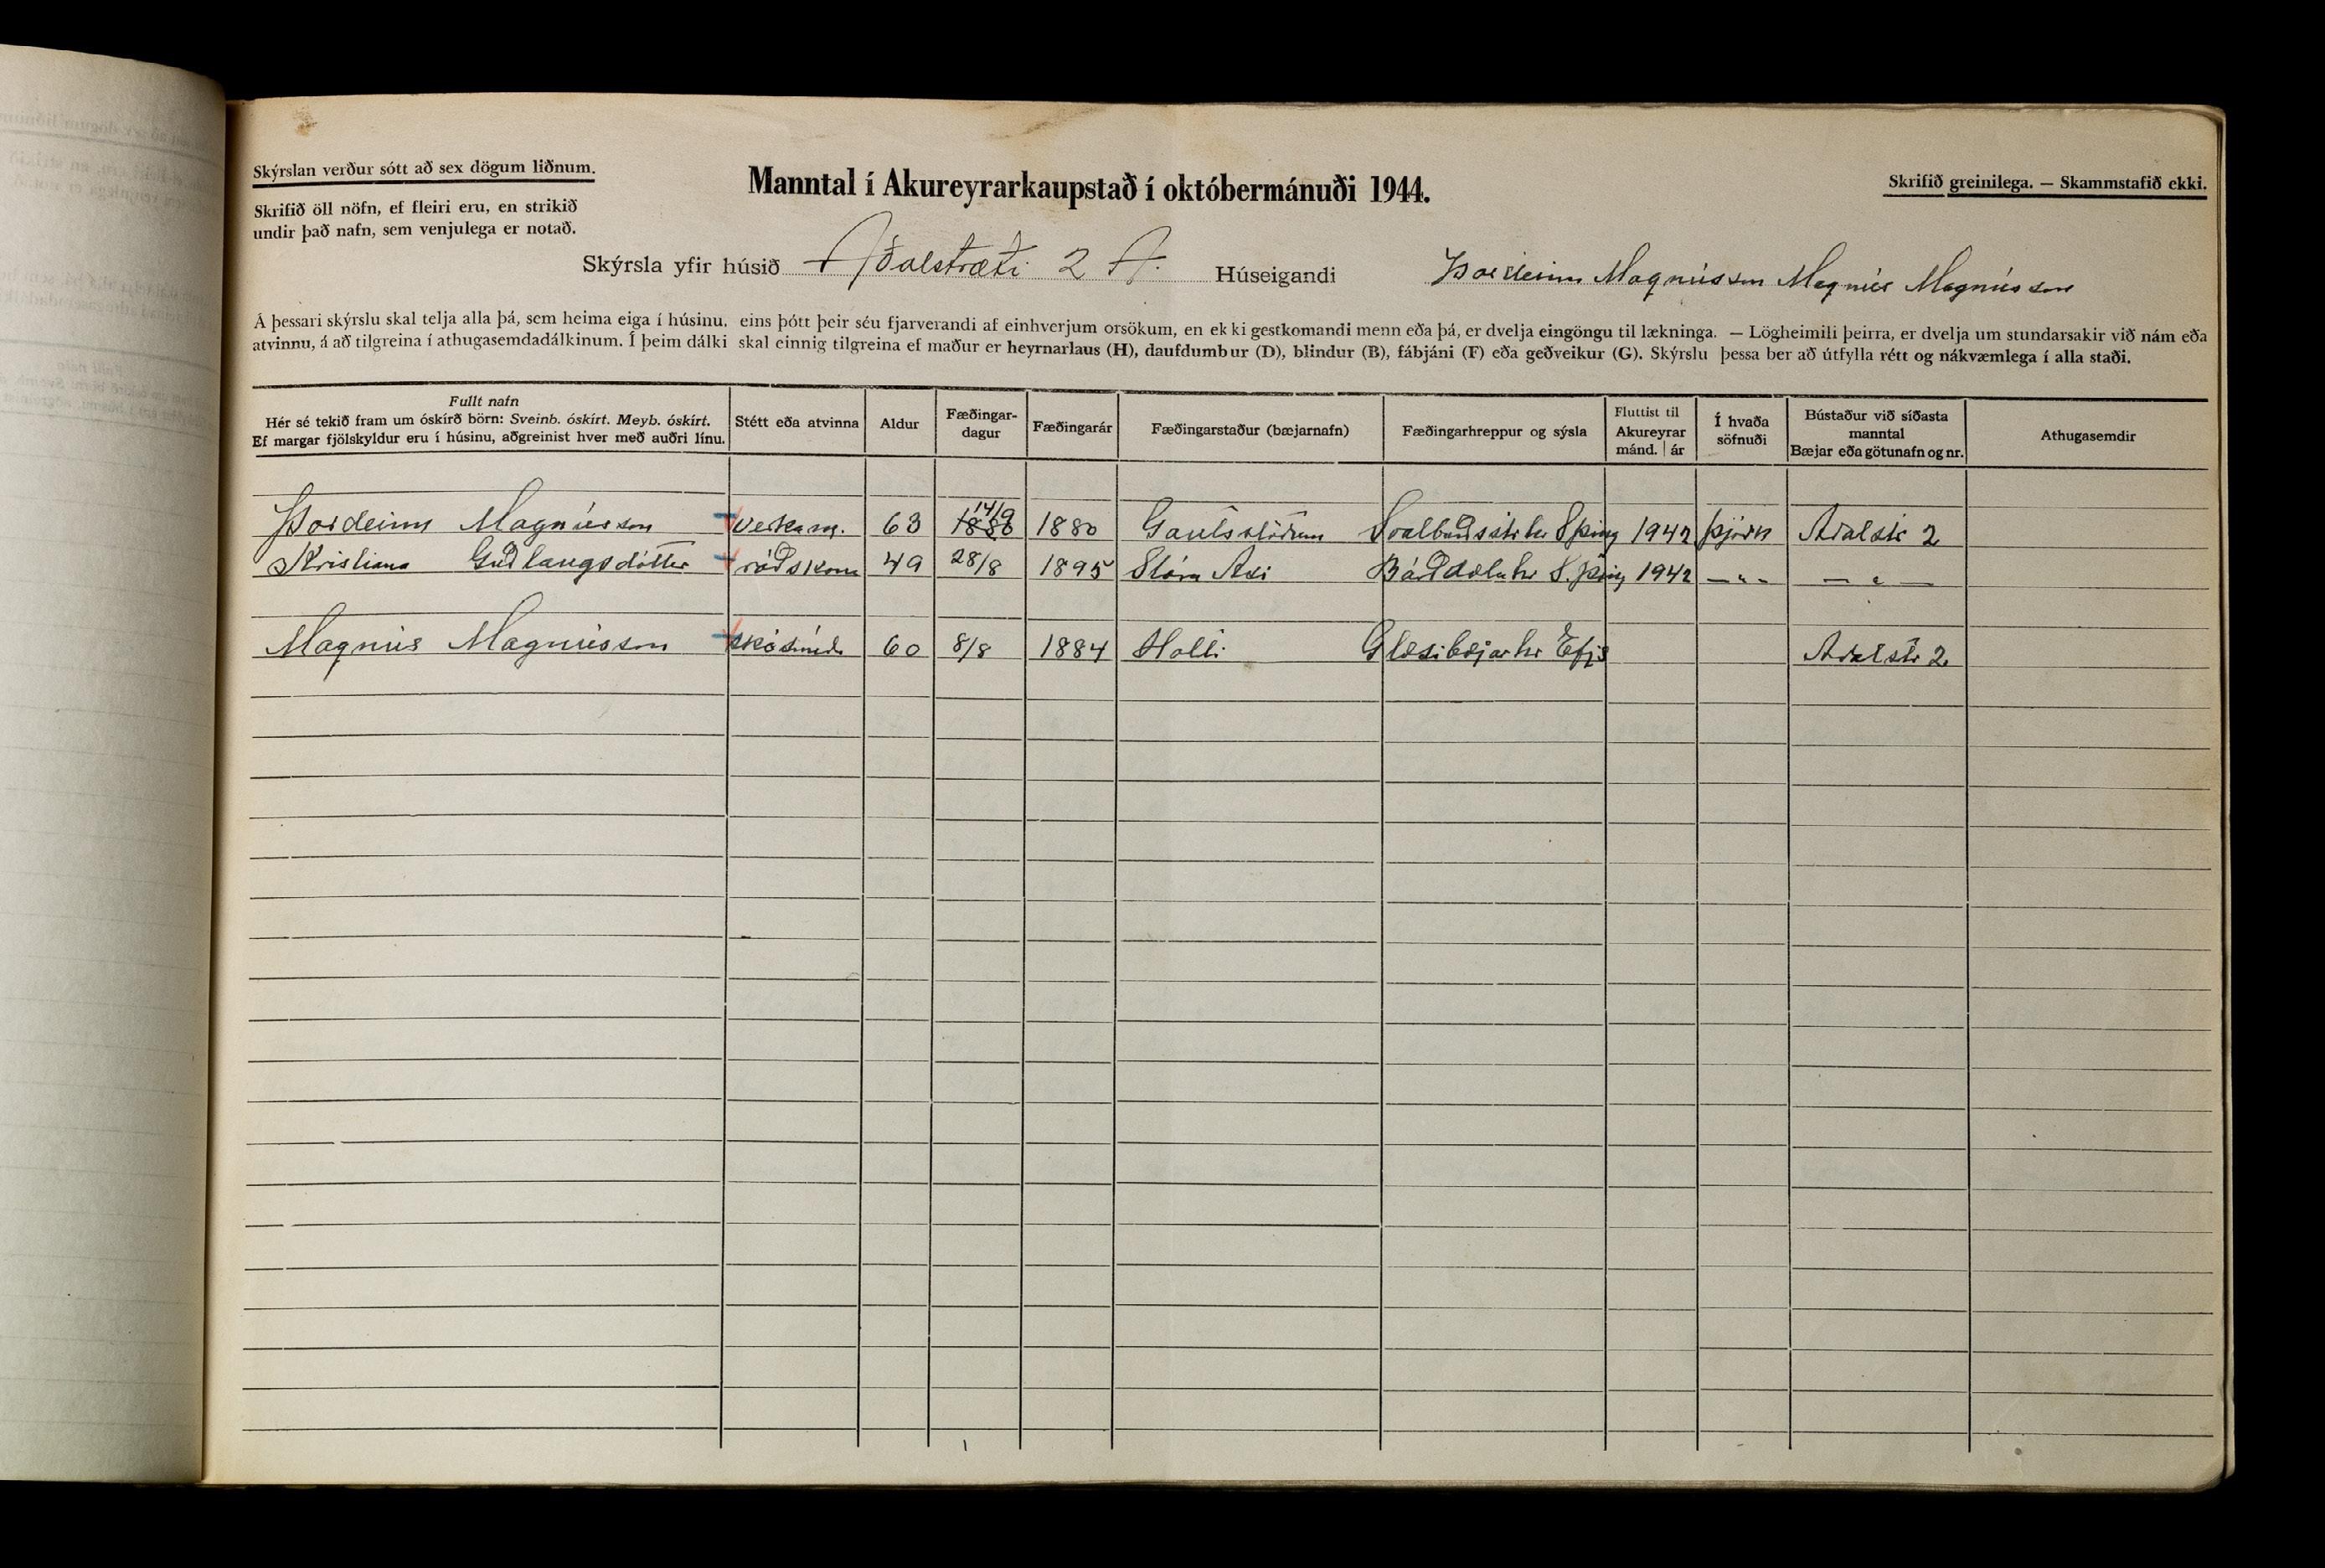 Skýrslan verður sótt að sex dögum liðnum.
Skrifið öll nöfn, ef fleiri eru, en strikið
undir það nafn, sem venjulega er notað.
Manntal í Akureyrarkaupstað í októbermánuði 1944.
Skrifið greinilega. — Skammstafið ekki.
Skýrsla yfir húsið Aðalstræti 2 A. Húseigandi Magnússon Magnús Magnússon
Á þessari skýrslu skal telja alla þá, sem heima eiga í húsinu, eins þótt þeir séu fjarverandi af einhverjum orsökum, en ekki gestkomandi menn eða þá, er dvelja eingöngu til lækninga. — Lögheimili þeirra, er dvelja um stundarsakir við nám eða
atvinnu, á að tilgreina í athugasemdadálkinum. Í þeim dálki skal einnig tilgreina ef maður er heyrnarlaus (H), daufdumbur (D), blindur (B), fábjáni (F) eða geðveikur (G). Skýrslu þessa ber að útfylla rétt og nákvæmlega í alla staði.
Fullt nafn
Hér sé tekið fram um óskírð börn: Sveinb. óskírt. Meyb. óskírt.
Ef margar fjölskyldur eru í húsinu, aðgreinist hver með auðri línu.
Stétt eða atvinna
Aldur
Fæðingar-
dagur
Fæðingarár
Fæðingarstaður (bæjarnafn)
Fæðingarhreppur og sýsla
Fluttist til
Akureyrar
mánd. | ár
Í hvaða
söfnuði
Bústaður við síðasta
manntal
Bæjar eða götunafn og nr.
Athugasemdir
14/9
Magnússon verkam. 63 1880 Gautsstöðum Svalbarðsstr hr S þing 1942 þjóðk Aðalstr 2
Kristiana Guðlaugsdóttir ráðskona 49 28/8 1895 Bárðdælahr S. þing 1942 — " — — " —
Magnús Magnússon skósmiður 60 8/8 1884 Glæsibæjarhr Efjs Aðalstr 2